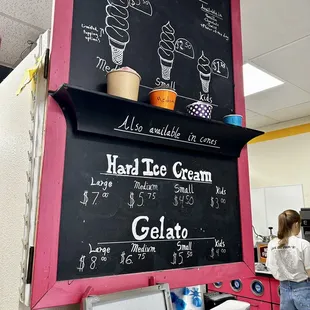 Med
Small
Kids
$2
$2
$1
MEDIUM
Also available in cones
Hard Ice Cream
Large Medium Small Kids
$7.00 $5.75 $4.50 $3.00
Gelato
Large Medium Small Kids
$8.00 $6.75 $5.50 $4.00